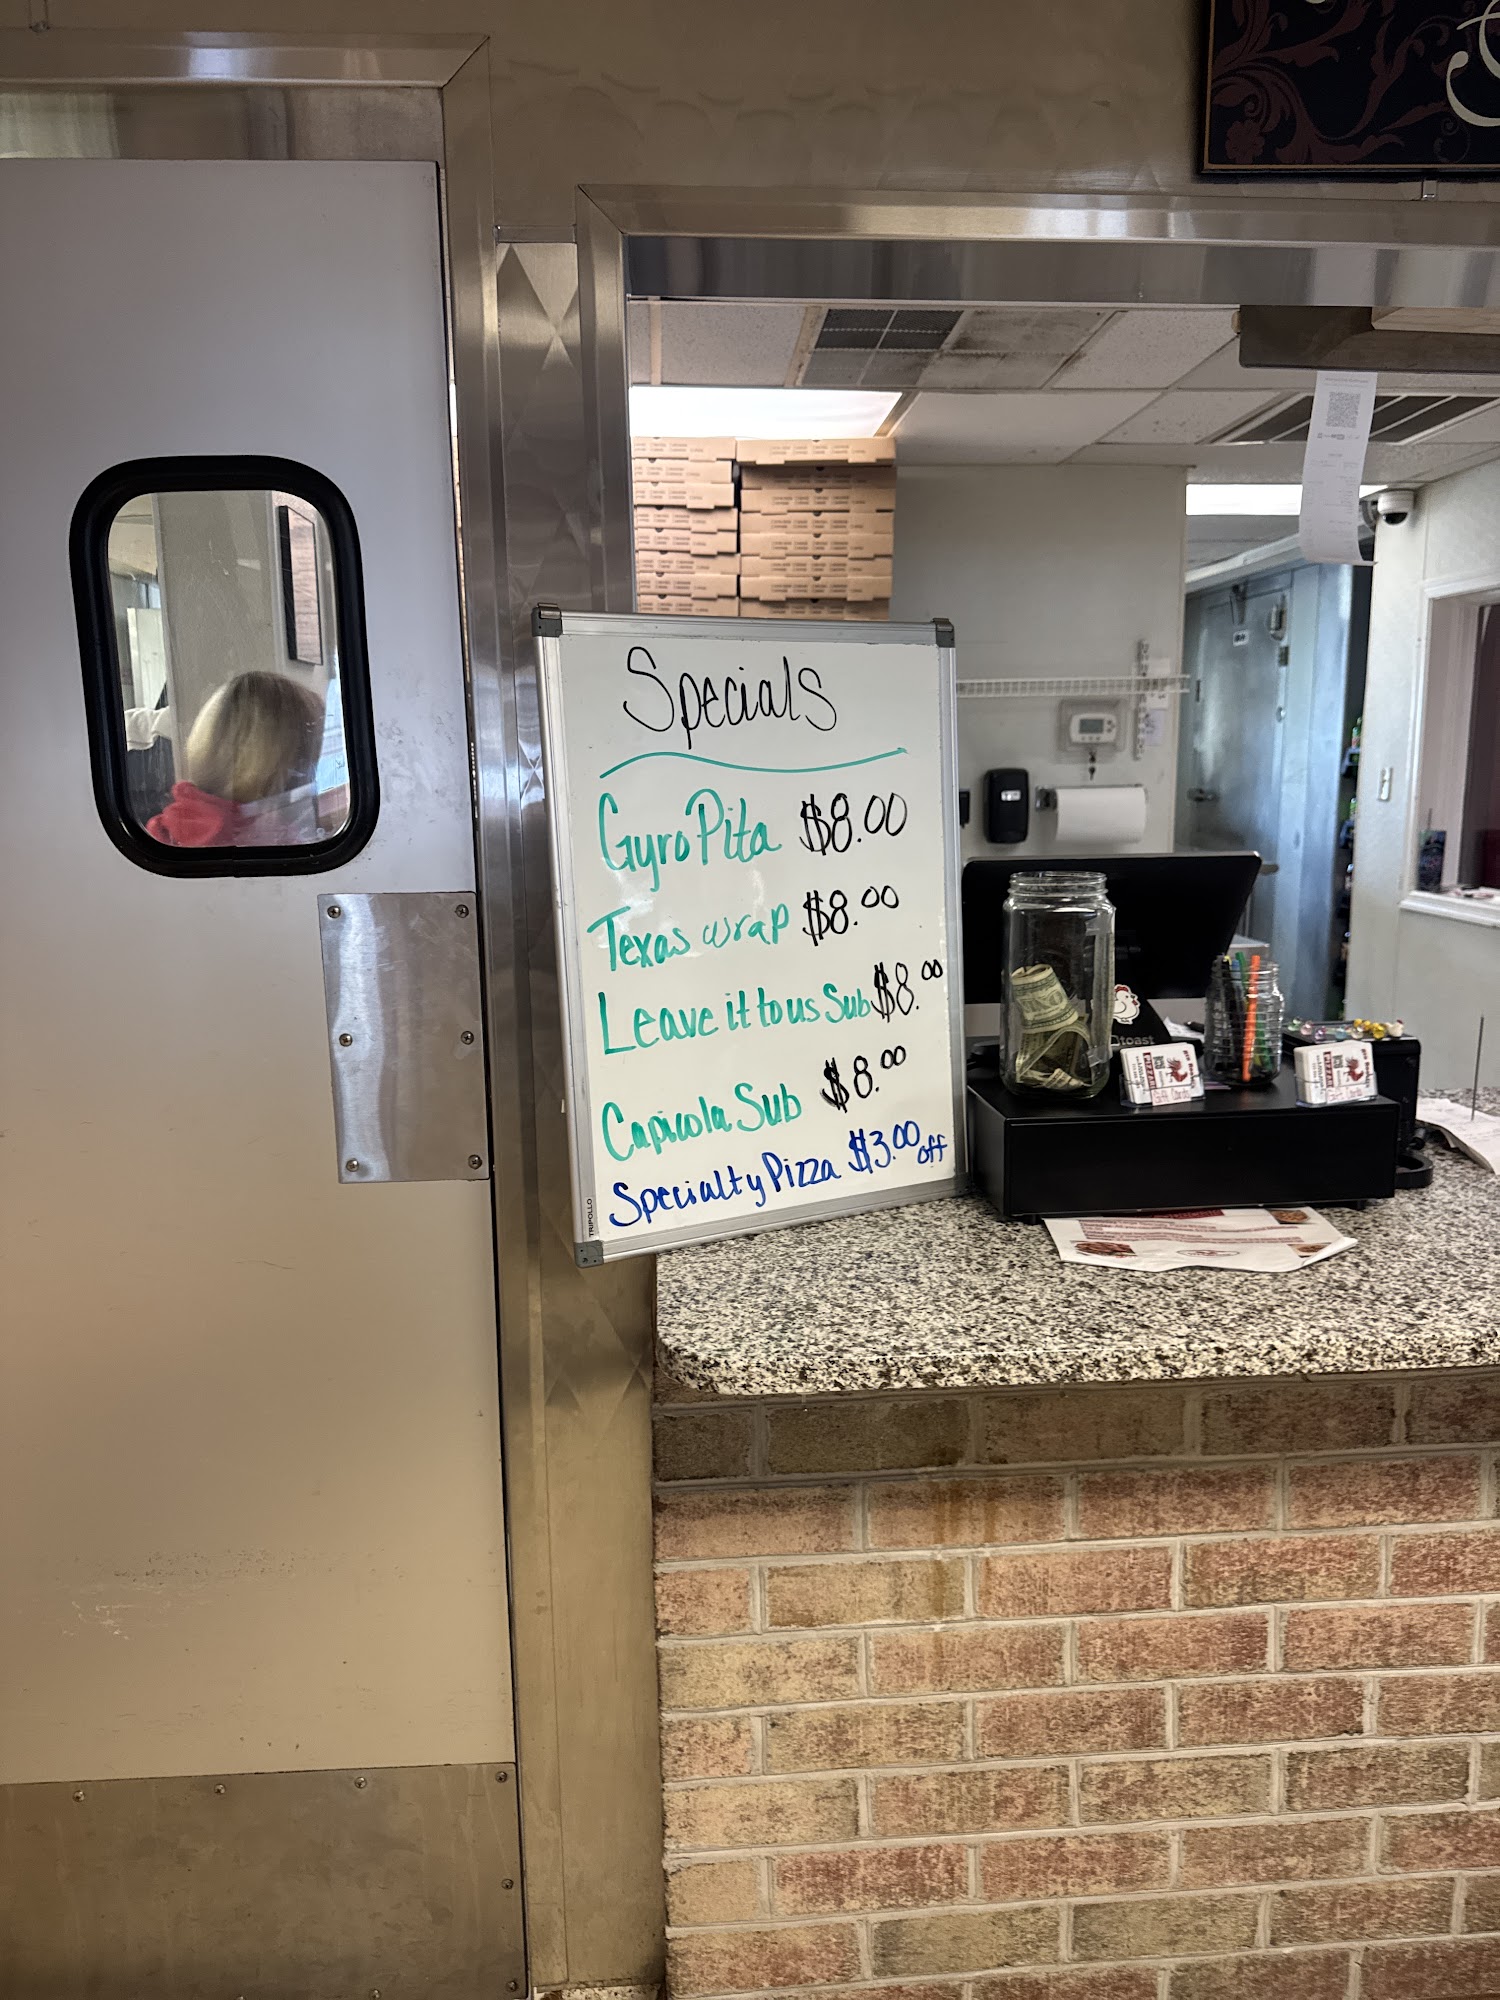 Specials
Gyro Pita $8.00
Texas wrap $8.00
Leave it to us Sub $8.00
Capicola Sub $8.00
Specialty Pizza $3.00 off
TRIPOLLO
toast
Gift Cards